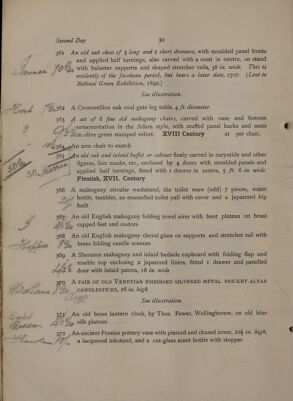 Second Day 30
361 An old oak chest of 3 long and 2 short drawers, with moulded panel fronts
and applied half turnings, also carved with a crest in centre, on stand
with baluster supports and shaped stretcher rails, 38 in. wide. This is
evidently of the Jacobean period, but bears a later date, 1707. (Lent to
Bethnal Green Exhibition, 1892.)
See illustration.
362 A Cromwellian oak oval gate leg table, 4 ft. diameter
363 A set of 6 fine old mahogany chairs, carved with vase and festoon
ornamentation in the Adam style, with stuffed panel backs and seats
in olive green stamped velvet. XVIII Century at per chair.
364 An arm chair to match
365 An old oak and inlaid buffet or cabinet finely carved in caryatide and other
figures, lion masks, etc., enclosed by 4 doors with moulded panels and
applied half turnings, fitted with 1 drawer in centre, 5 ft. 6 in. wide.
Flemish, XVII. Century
366 A mahogany circular washstand, the toilet ware (odd) 7 pieces, water
bottle, tumbler, an enamelled toilet pail with cover and a japanned hip
bath
367 An old English mahogany folding towel airer with boot plateau on brass
capped feet and castors
368 An old English mahogany cheval glass on supports and stretcher rail with
brass folding candle sconces
369 A Sheraton mahogany and inlaid bedside cupboard with folding flap and
marble top enclosing 2 japanned liners, fitted 1 drawer and panelled
door with inlaid patera, 18 in. wide
370 A PAIR OF OLD VENETIAN EMBOSSED SILVERED METAL PRICKET ALTAR
CANDLESTICKS, 28 in. high
See illustration.
371 An old brass lantern clock, by Thos. Power, Wellingborow, on old blue
silk plateau
372 An ancient Persian pottery vase with pierced and chased cover, 10½ in. high,
a lacquered inkstand, and a cut-glass scent bottle with stopper